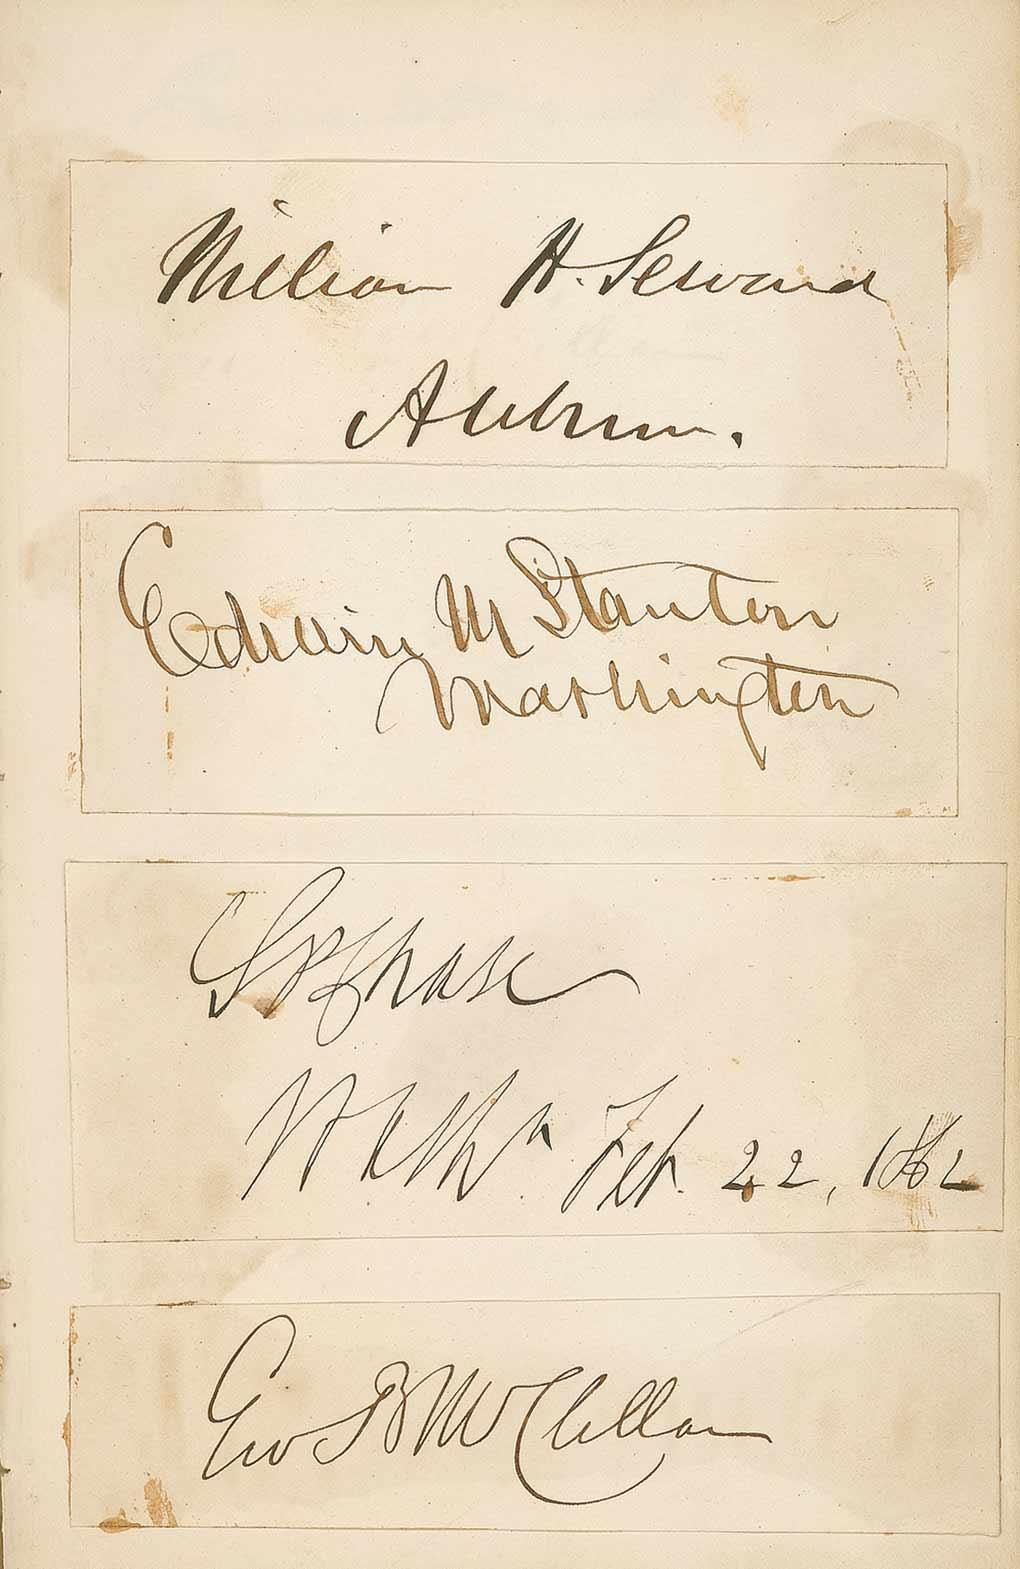 William H. Seward
Auburn.
Edwin M Stanton
Washington
S P Chase
Washn. Feb. 22, 1862
Geo B McClellan